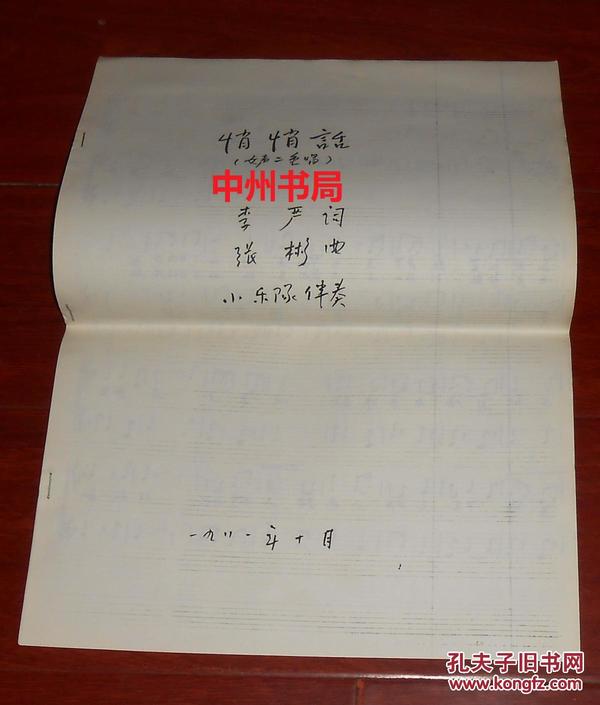 悄悄話
(女声二重唱)
中州书局
李严词
张彬曲
小乐隊伴奏
一九八一年十月
孔夫子旧书网
www.kongfz.com